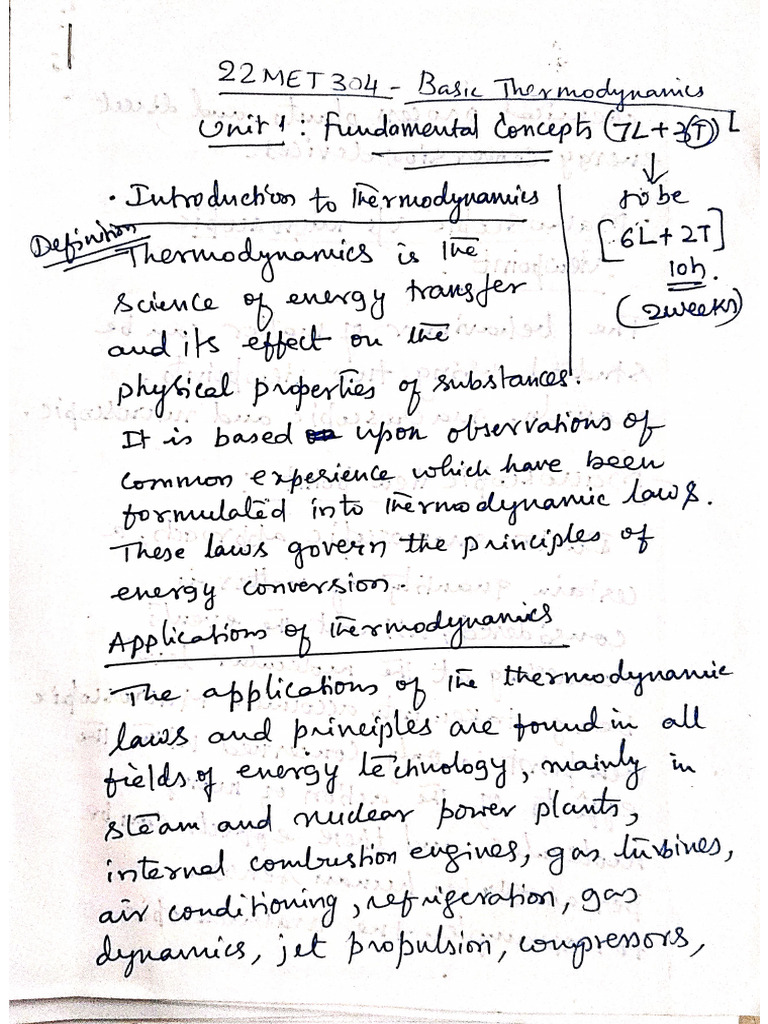 22MET304 - Basic Thermodynamics
Unit 1 : Fundamental Concepts (7L+3T)
to be
[6L+2T]
10h.
(2weeks)
• Introduction to Thermodynamics
Definition
Thermodynamics is the
science of energy transfer
and its effect on the
physical properties of substances.
It is based upon observations of
common experience which have been
formulated into thermodynamic laws.
These laws govern the principles of
energy conversion.
Applications of thermodynamics
The applications of the thermodynamic
laws and principles are found in all
fields of energy technology, mainly in
steam and nuclear power plants,
internal combustion engines, gas turbines,
air conditioning, refrigeration, gas
dynamics, jet propulsion, compressors,